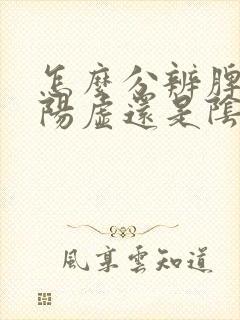 怎麼分辨脾
陽虛還是陰
風享雲知道